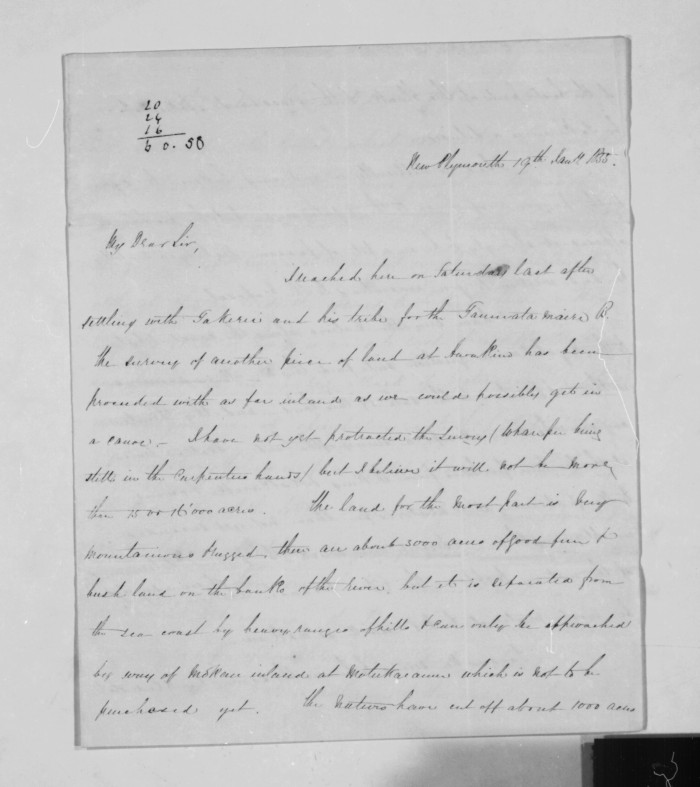 20
24
16
6 0. 58
New Plymouth 19th Jany 1855.
My Dear Sir,
I reached here on Saturday last after
settling with Takerei and his tribe for the Taumatamaire B.
The survey of another piece of land at Awakino has been
proceeded with as far inland as we could possibly get in
a canoe – I have not yet protracted the survey (Wharfe being
still in the Carpenters hands) but I believe it will not be more
than 15 or 16000 acres. The land for the most part is very
mountainous & rugged, there are about 3000 acres of good fern &
bush land on the banks of the river, but it is separated from
the sea coast by heavy ranges of hills & can only be approached
by way of Mokau inland at Motukaramu which is not to be
purchased yet. The Natives have cut off about 1000 acres